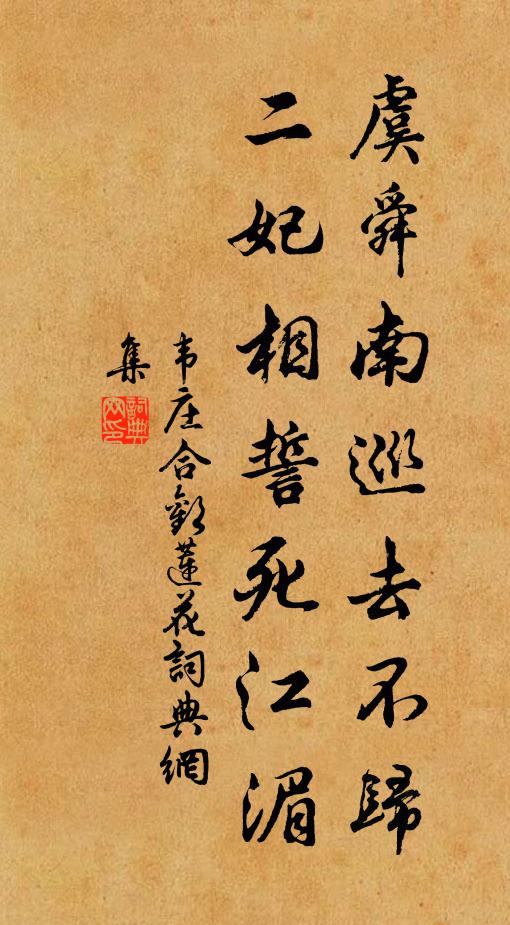 虞舜南巡去不歸
二妃相誓死江湄
韦庄合歡蓮花詞典網
集
詞典
网印